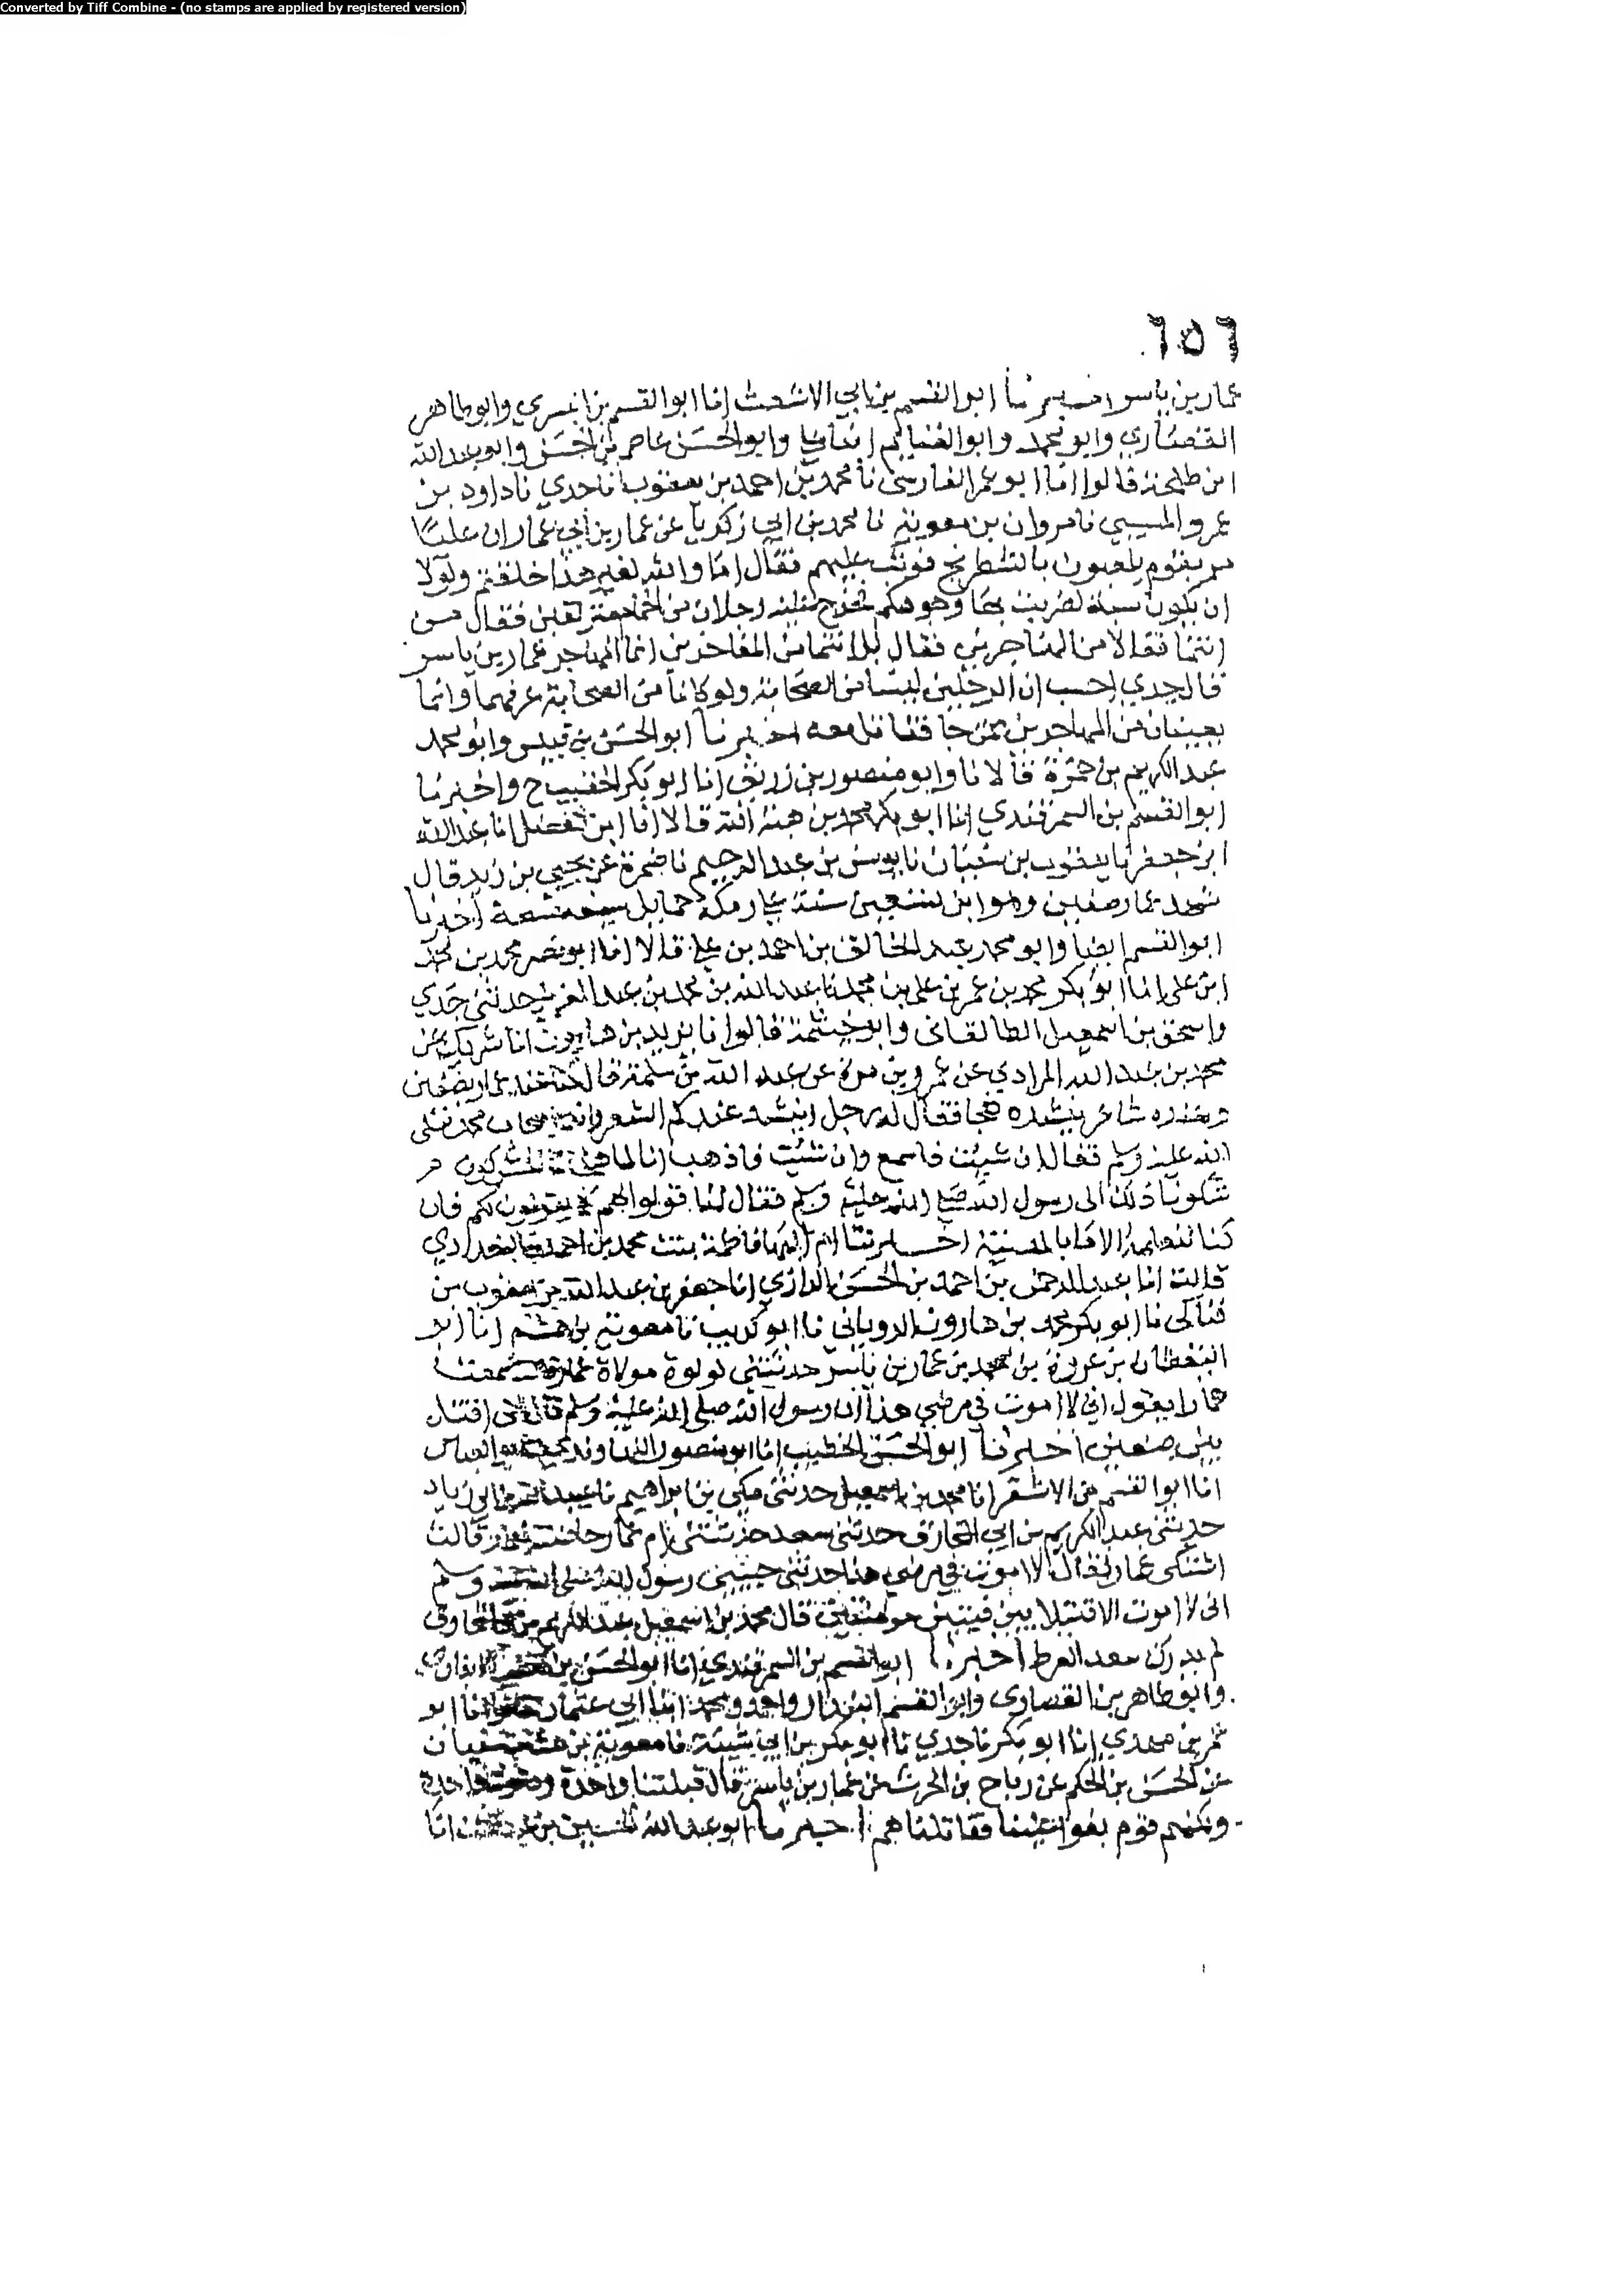 Converted by Tiff Combine - (no stamps are applied by registered version)
٦٥٦
عمار بن ياسر اخبرنا ابو القسم بن ابي الاشعث انا ابو القسم بن البسري وابو طاهر
القصاري وابو محمد وابو الغنايم ابنا وابو الحسن عاصم بن الحسن وابو عبد الله
ابن طلحة قالوا انا ابو عمر الفارسي نا محمد بن احمد بن يعقوب نا جدي نا داود بن
عمرو المسيبي نا مروان بن معوية نا محمد بن ابي زكريا عن عمار بن ابي عمار ان عليا
مر بقوم يلعبون بالشطرنج فوثب عليهم فقال اما والله لغير هذا خلقتم ولولا
ان يكون سنة لضربت بها وجوهكم خرج اليه رجلان من فقال من
انتما فقالا من المهاجرين فقال بل انتما من المفاخرين انما المهاجر عمار بن ياسر
قال جدي احسب ان الرجلين ليسا من الصحابة ولو كانا من الصحابة عرفهما وانما
يعنيان من المهاجرين ممن جا قاتل معه اخبرنا ابو الحسن بن قبيس وابو محمد
عبد الكريم بن حمزة قالا نا وابو منصور بن زريق انا ابو بكر الخطيب ح واخبرنا
ابو القسم بن السمرقندي انا ابو بكر محمد بن هبة الله قالا انا ابن الفضل انا عبد الله
ابن جعفر نا يعقوب بن سفيان نا يونس بن عبد الرحيم نا ضمرة عن يحيى بن زيد قال
شهد عمار صفين وهو ابن تسعين سنة على رمكة حمايل سيفه نسعة اخبرنا
ابو القسم ايضا وابو محمد عبد الخالق بن احمد بن علي قالا انا ابو نصر محمد بن محمد
ابن علي انا ابو بكر محمد بن عمر بن علي بن محمد نا عبد الله بن محمد بن عبد العزيز حدثني جدي
واسحق بن اسمعيل الطالقاني وابو خيثمة قالوا نا يزيد بن هارون انا شريك عن
محمد بن عبد الله المرادي عن عمرو بن مرة عن عبد الله بن سلمة قال كنا عند عمار بصفين
وعنده شاعر ينشده فقال له رجل اينشد عندكم الشعر وانتم اصحاب محمد صلى
الله عليه وسلم فقال ان شئت فاسمع وان شئت فاذهب انا لما هجانا المشركون
شكونا ذلك الى رسول الله صلى الله عليه وسلم فقال لنا قولوا لهم كما يقولون لكم فان
كنا لنعلمه الاما بالمدينة اخبرتنا ام البها فاطمة بنت محمد بن احمد البغدادي
قالت انا عبد الرحمن بن احمد بن الحسن الرازي انا جعفر بن عبد الله بن يعقوب بن
فناكي نا ابو بكر محمد بن هارون الروياني نا ابو كريب نا معوية بن هشام انا ابو
اليقظان بن عروة بن محمد بن عمار بن ياسر حدثتني لولوة مولاة عمار قالت سمعت
عمارا يقول اني لا اموت في مرضي هذا ان رسول الله صلى الله عليه وسلم قال اني اقتل
بين صفين اخبرنا ابو الحسن الخطيب انا ابو منصور النهاوندي نا ابو العباس
انا ابو القسم بن الاشقر انا محمد بن اسمعيل حدثني مكي بن ابراهيم نا عبيد الله بن ابي زياد
حدثني عبد الكريم بن ابي المخارق حدثني سعد حدثتني ام عمار حاضنة عمار قالت
اشتكى عمار فقال لا اموت في مرضي هذا حدثني حبيبي رسول الله صلى الله عليه وسلم
اني لا اموت الا قتيلا بين فيتين مومنتين قال محمد بن اسمعيل عبد الكريم بن ابي المخارق
لم يدرك سعد القرظ اخبرنا ابو القسم بن السمرقندي انا ابو الحسن بن
وابو طاهر بن القصاري وابو القسم ابن واحمد ومحمد ابنا ابي عثمان قالوا انا ابو
عمر بن مهدي انا ابو بكر نا جدي نا ابو بكر بن ابي شيبة نا معوية بن هشام عن سفيان
عن الحسن بن الحكم عن رباح بن الحرث عن عمار بن ياسر قال قبلتنا واحدة ودعوتنا واحدة
ولكنهم قوم بغوا علينا فقاتلناهم اخبرنا ابو عبد الله الحسين بن انا